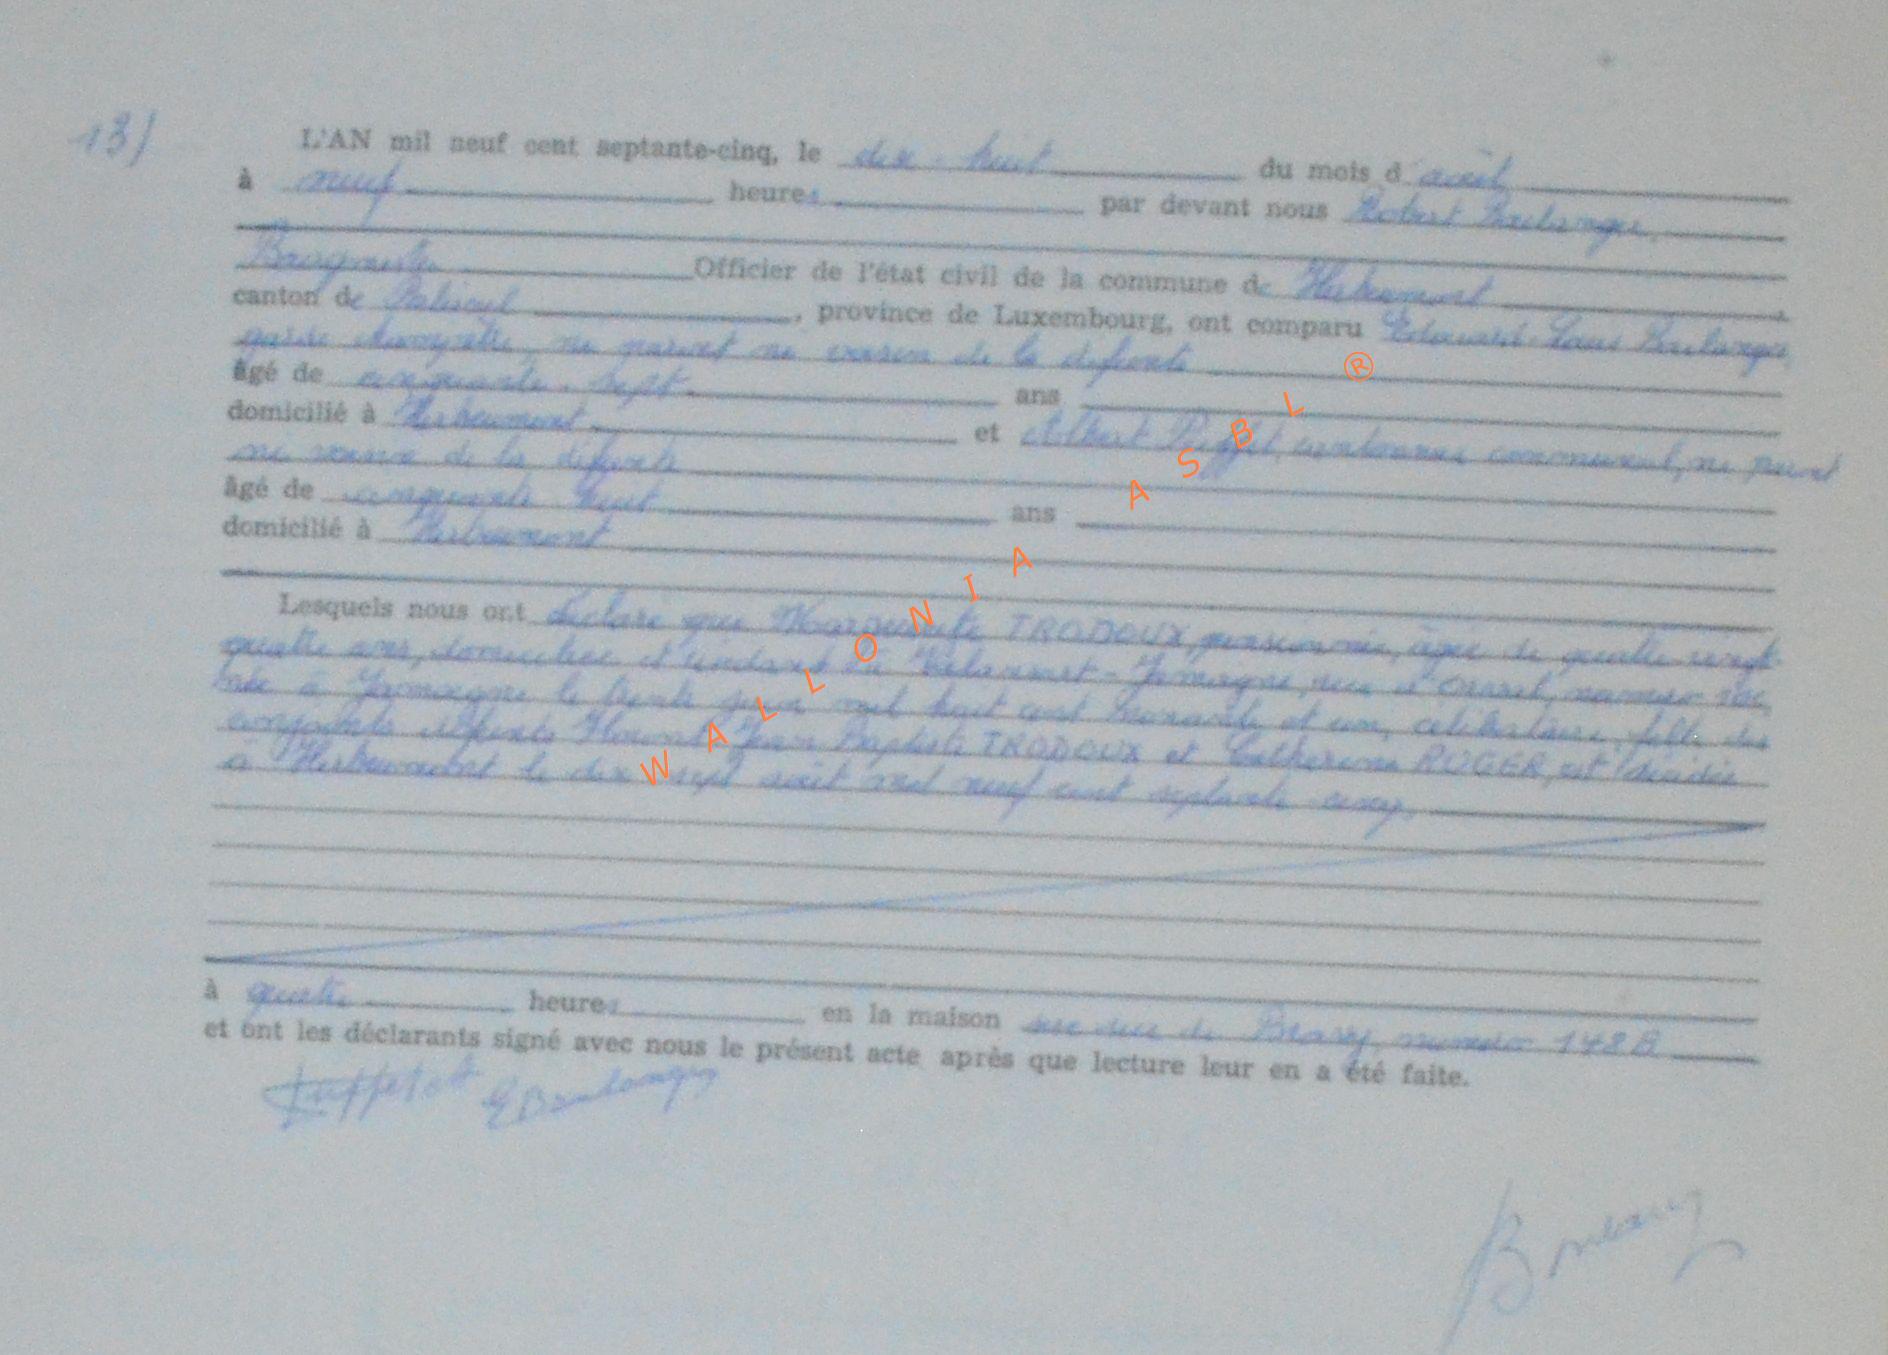 13)
L'AN mil neuf cent septante-cinq, le dix-huit du mois d'août
à neuf heures par devant nous Robert Boulanger,
Bourgmestre Officier de l'état civil de la commune de Herbeumont
canton de Paliseul, province de Luxembourg, ont comparu Edouard-Louis Boulanger,
garde champêtre, ni parent ni voisin de la défunte
âgé de cinquante-sept ans
domicilié à Herbeumont et Albert cantonnier communal, ni parent
ni voisin de la défunte
âgé de cinquante huit ans
domicilié à Herbeumont
Lesquels nous ont déclaré que Marguerite TRODOUX, pensionnée, âgée de quatre-vingt-
quatre ans, domiciliée et résidant à Jamoigne, rue numéro
née à Jamoigne le trente juin mil huit cent nonante et un, célibataire, fille des
conjoints défunts Florent Jean Baptiste TRODOUX et Catherine ROGER, est décédée
à Herbeumont le dix sept août mil neuf cent septante cinq,
à quatre heures en la maison sise rue de numéro 148B
et ont les déclarants signé avec nous le présent acte après que lecture leur en a été faite.
EBoulanger
Boulanger
WALLONIA ASBL ®